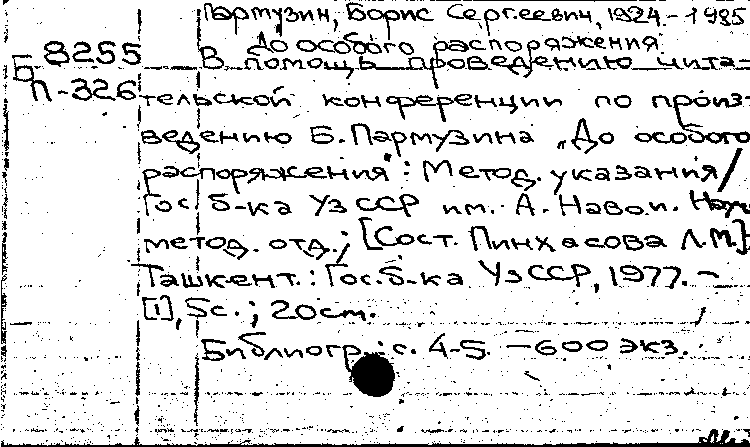 Пармузин, Борис Сергеевич, 1924-1985
До особого распоряжения.
Б 8255 В помощь проведению чита-
П-326 тельской конференции по произ-
ведению Б. Пармузина „До особого
распоряжения": Метод. указания /
Гос. б-ка УзССР им. А. Навои. Науч.
метод. отд.; [Сост. Пинхасова Л.М.]
Ташкент.: Гос. б-ка УзССР, 1977. -
[1], 5с.; 20см.
Библиогр.: с. 4-5. - 600 экз.